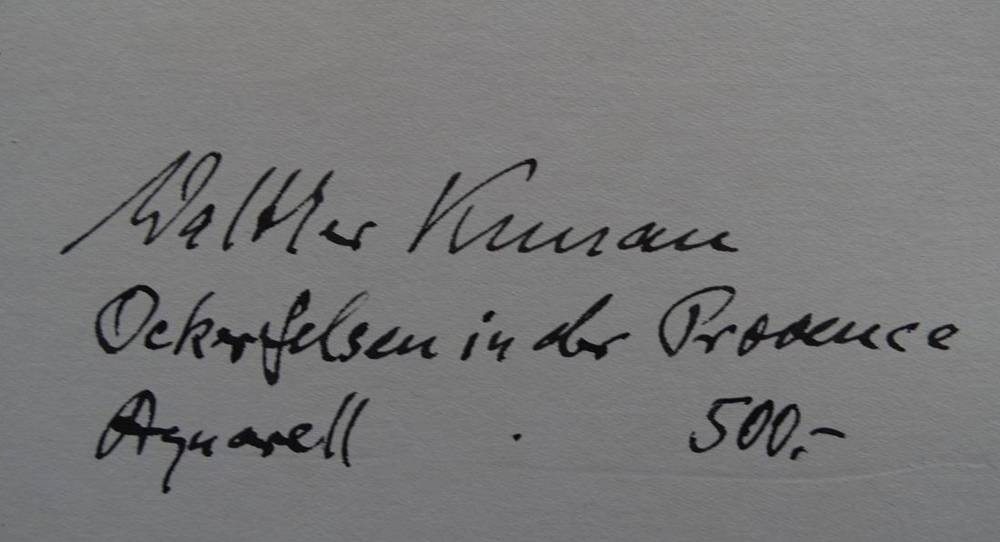 Walther Kunau
Ockerfelsen in der Provence
Aquarell 500.-